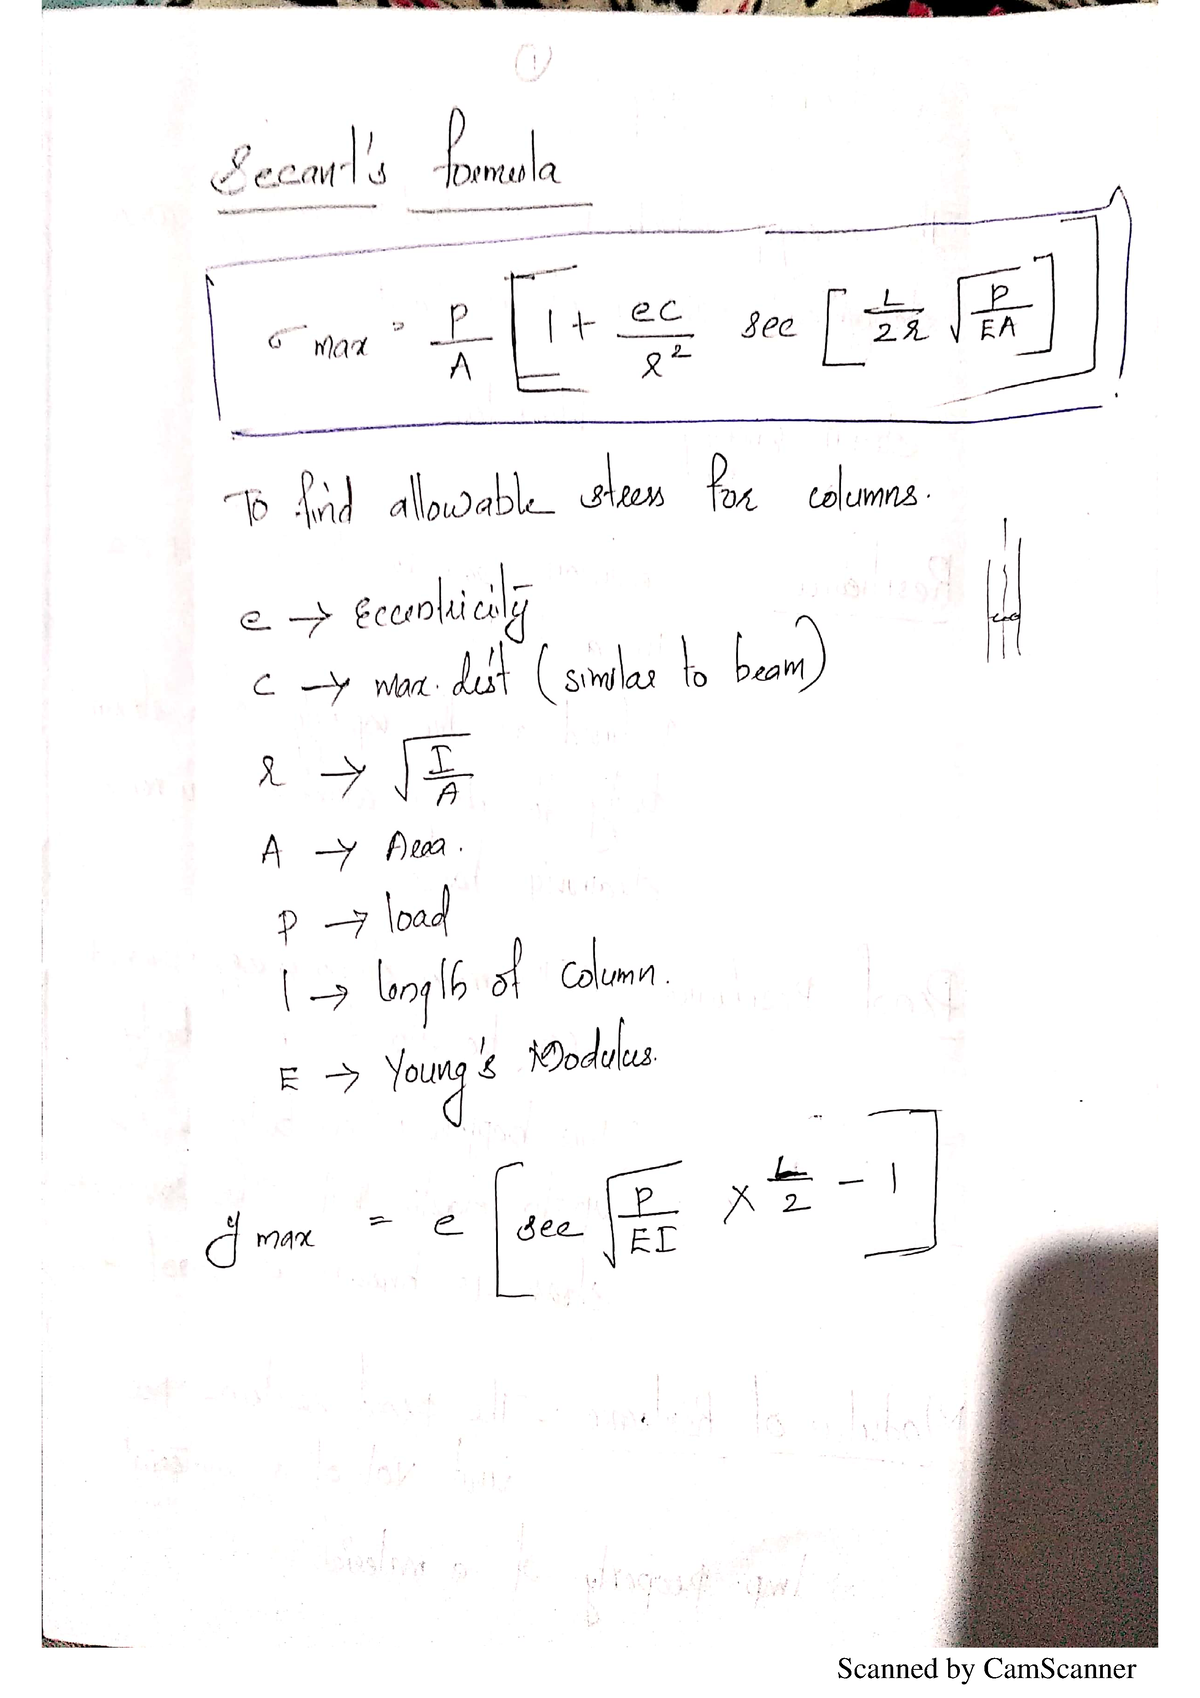 1
Secant's formula
σ max = P/A [ 1 + ec/r² sec [ L/2r √(P/EA) ] ]
To find allowable stress for columns.
e → Eccentricity
c → max. dist (similar to beam)
r → √(I/A)
A → Area.
P → load
l → length of column.
E → Young's Modulus.
y max = e [ sec √(P/EI) × L/2 - 1 ]
Scanned by CamScanner